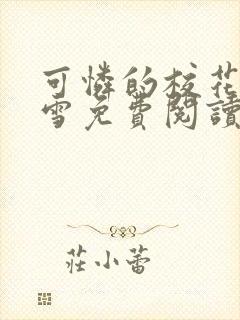 可憐的校花
雪免費閱讀
莊小蕾